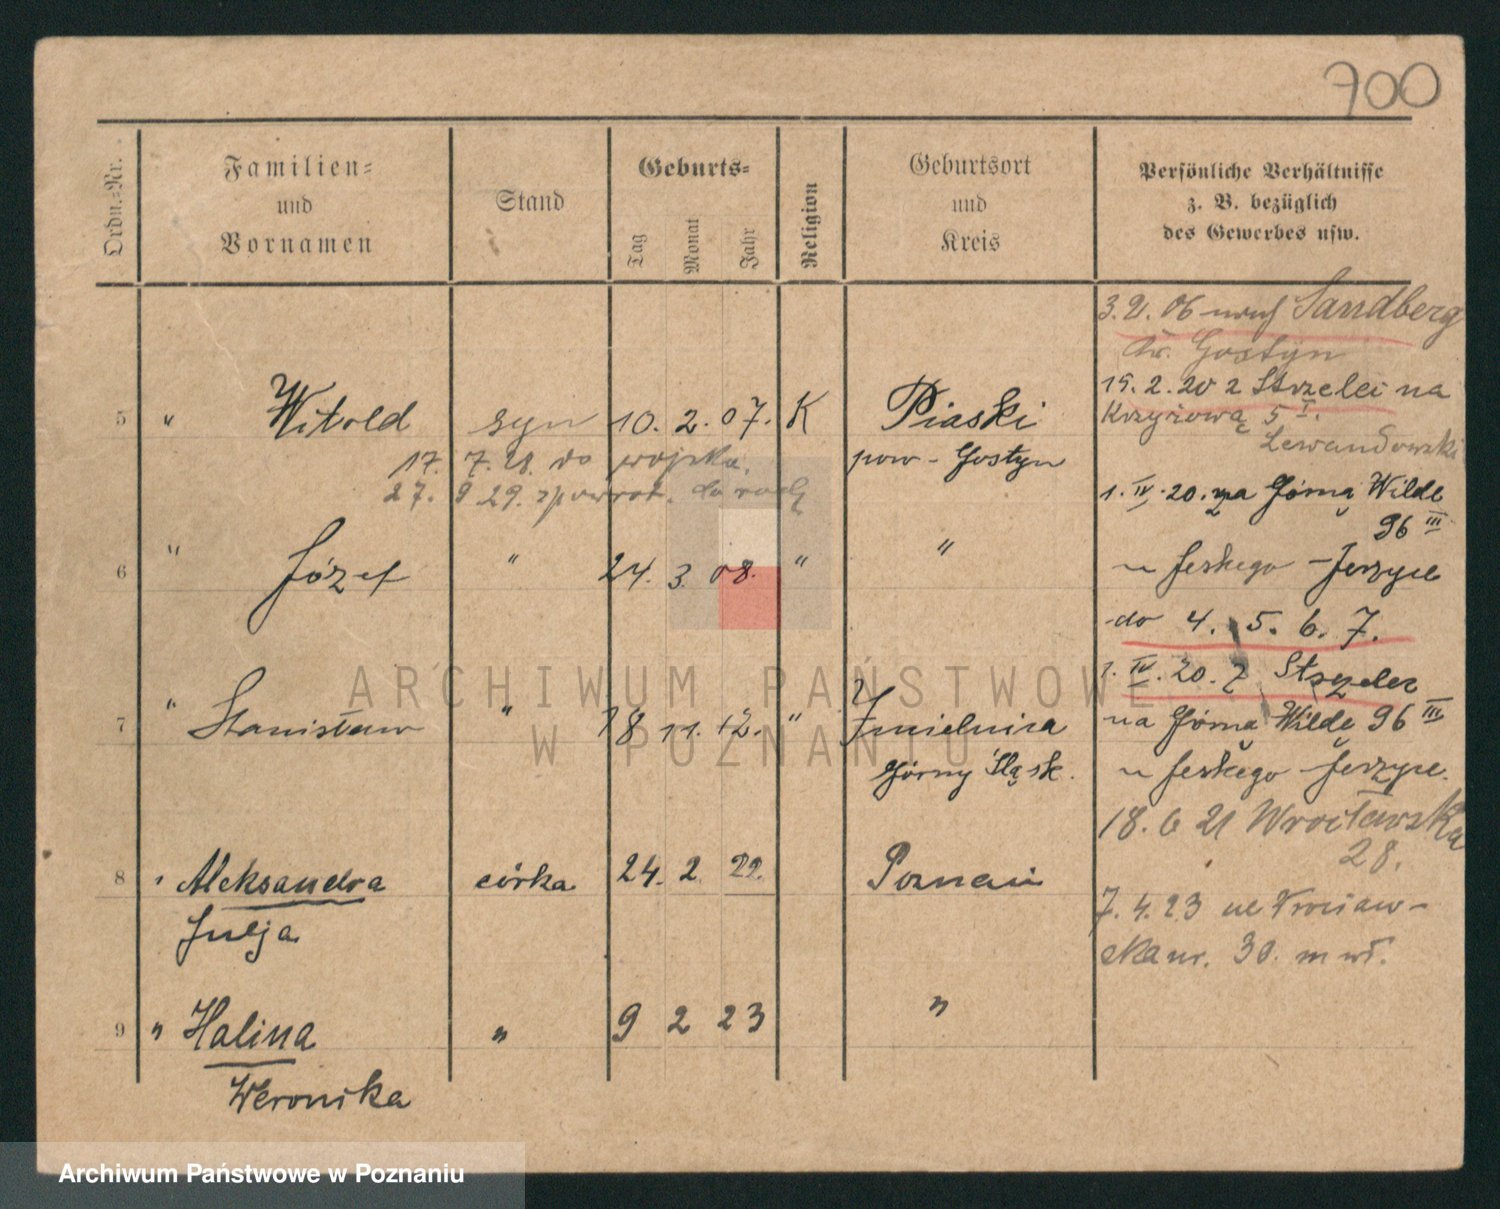 700
Ordn.-Nr.
Familien-
und
Vornamen
Stand
Geburts-
Tag
Monat
Jahr
Religion
Geburtsort
und
Kreis
Persönliche Verhältnisse
z. B. bezüglich
des Gewerbes usw.
3.2.06 nach Sandberg
Kr. Gostyn
15.2.20 z Strzelci na
Krzyżową 5 I.
Lewandowski
5 " Witold syn 10. 2. 07. K Piaski
pow - Gostyn
17. 7.28. do wojska.
27. 9 29. zpowrot.
1. IV. 20. na Górną Wildę
96 III
6 " Józef " 24. 3. 08. " "
u Jeskego - Jerzyce
do 4. 5. 6. 7.
1. IV. 20. z Strzelec
7 " Stanisław " 18 11. 12. "
Górny Śląsk.
na Górną Wildę 96 III
u Jeskego - Jerzyce.
18. 6 21 Wrocławska
28.
8 " Aleksandra córka 24. 2. 22. Poznań
Julja
7. 4. 23 ul Wrocław-
ska nr. 30. m wł.
9 " Halina " 9 2 23 "
Weronika
ARCHIWUM PAŃSTWOWE
W POZNANIU
Archiwum Państwowe w Poznaniu